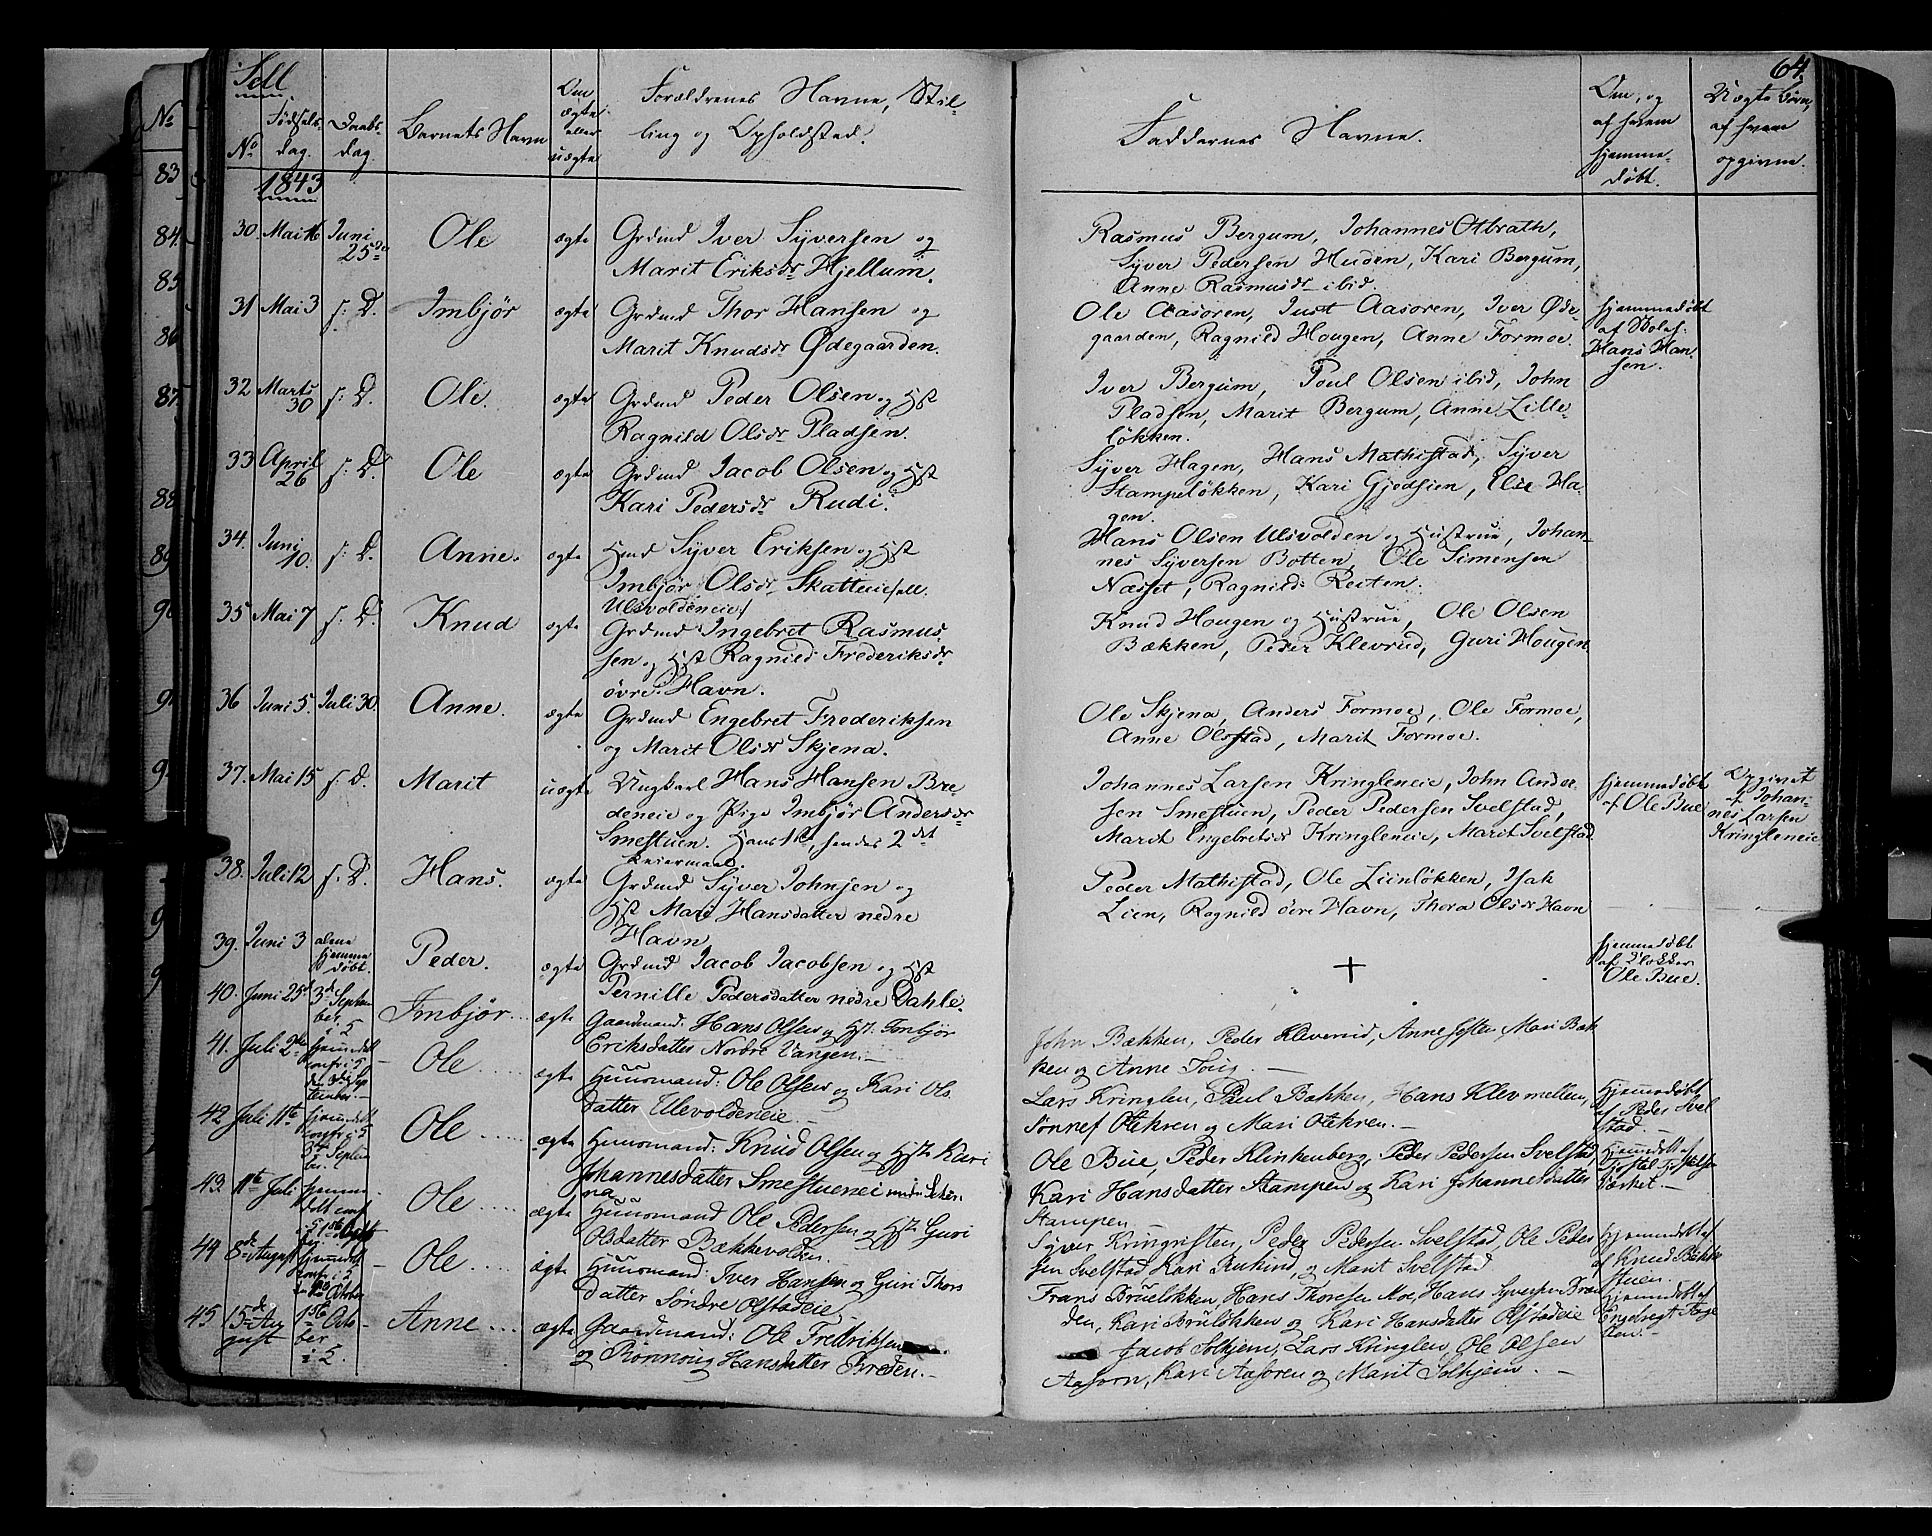 64.
Sell
No
Fødsels-
dag.
Daabs-
dag.
Barnets Navn
Om
ægte
eller
uægte
Forældrenes Navne, Stil-
ling og Opholdsted.
Faddernes Navne.
Om, og
af hvem
hjemme-
døbt.
Uægte Børn,
af hvem
opgivne.
1843
30. Mai 16 Juni 25de Ole ægte Grdmd Iver Syversen og
Marit Eriksdr Hjellum.
Rasmus Bergum, Johannes Olbrath,
Syver Pedersen Huden, Kari Bergum,
Anne Rasmusdr ibid.
31 Mai 3 s. D. Imbjør ægte Grdmd Thor Hansen og
Marit Knudsdr Ødegaarden.
Ole Aasoren, Just Aasoren, Iver Øde-
gaarden, Ragnild Hougen, Anne Formoe.
hjemmedøbt
af Skolef.
Hans Han-
sen.
32 Marts 30 s. D. Ole. ægte Grdmd Peder Olsen og Hst
Ragnild Olsdr Pladsen.
Iver Bergum, Poul Olsen ibid, John
Pladsen, Marit Bergum, Anne Lille-
løkken.
33 April 26 s. D. Ole ægte Grdmd Jacob Olsen og Hst
Kari Pedersdr Rudi.
Syver Hagen, Hans Mathistad, Syver
Stampeløkken, Kari Gjedsien, Else Ha-
gen.
34. Juni 10. s. D. Anne. ægte Hmd Syver Eriksen og Hst
Imbjør Olsdr Skatteie
Ulsvoldeneie
Hans Olsen Ulsvolden og Hustrue, Johan-
nes Syversen Botten, Ole Simensen
Næsset, Ragnild Reiten.
35 Mai 7 s. D. Knud ægte Grdmd Ingebret Rasmus-
sen og Hst Ragnild Frederiksdr
øvre Havn.
Knud Hougen og Hustrue, Ole Olsen
Bækken, Peder Klevrud, Guri Hougen
36 Juni 5. Juli 30. Anne. ægte Grdmd Engebret Frederiksen
og Marit Olsdr Skjena.
Ole Skjena, Anders Formoe, Ole Formoe,
Anne Olsstad, Marit Formoe.
37. Mai 15 s. D. Marit uægte Ungkarl Hans Hansen Bre-
deneie og Pige Imbjør Andersdr
Smestuen. Hans 1te, hendes 2det
Leiermaal.
Johannes Larsen Kringleneie, John Ander-
sen Smestuen, Peder Pedersen Svelstad,
Marit Engebretsdr Kringleneie, Marit Svelstad
hjemmedøbt
af Ole Bue
Opgivet
af Johan-
nes Larsen
Kringleneie
38. Juli 12 s. D. Hans. ægte Grdmd Syver Johnsen og
Hst Mari Hansdatter nedre
Havn
Peder Mathistad, Ole Liinløkken, Isak
Lien, Ragnild øvre Havn, Thora Olsdr Havn
39. Juni 3 alene
hjemme
døbt. Peder. ægte Grdmd Jacob Jacobsen og Hst
Pernille Pedersdatter nedre Dahle.
+
hjemmedøbt
af Klokker
Ole Bue.
40. Juni 25de 3de Septem
ber Imbjør ægte Gaardmand: Hans Olsen og Hst: Imbjør
Eriksdatter Nordre Vangen.
John Bækken, Peder Kleverud, Anne Mari Bæk
ken og Anne
41. Juli 2den Ole ægte Huusmand: Ole Olsen og Kari Ols
datter Ulevoldeneie
Lars Kringlen, Paul Bækken, Hans Klevmellen,
Sønnef og Mari
hjemmedøbt
af Peder Svel
stad
42 Juli 11te Ole ægte Huusmand: Knud Olsen og Hst: Kari
Johannesdatter Smestuenei
Ole Bue, Peder Klinkenberg, Peder Pedersen Svelstad,
Kari Hansdatter Stampen og Kari Johannesdatter
Stampen
43. 11te Juli Ole ægte Huusmand Ole Pedersen og Hst: Guri
Olsdatter Bækkevolden
Syver Kringristen, Peder Pedersen Svelstad, Ole Peder
sen Svelstad, Kari og Marit Svelstad
af Knud Bække
stuen.
44 8de August Ole ægte Huusmand: Iver Hansen og Guri Thors
datter Søndre Olstadeie
Frans Bruløkken, Hans Thoresen Moe, Hans Syversen Bræ
den, Kari Bruløkken og Kari Hansdatter Olstadeie
45 15de Au
gust 1ste Octo
ber Anne ægte Gaardmand: Ole Fredriksen
og Rønnoug Hansdatter Breden.
Jacob Solhjem, Lars Kringlen, Ole Olsen
Aasorn, Kari Aasoren og Marit Solhjem